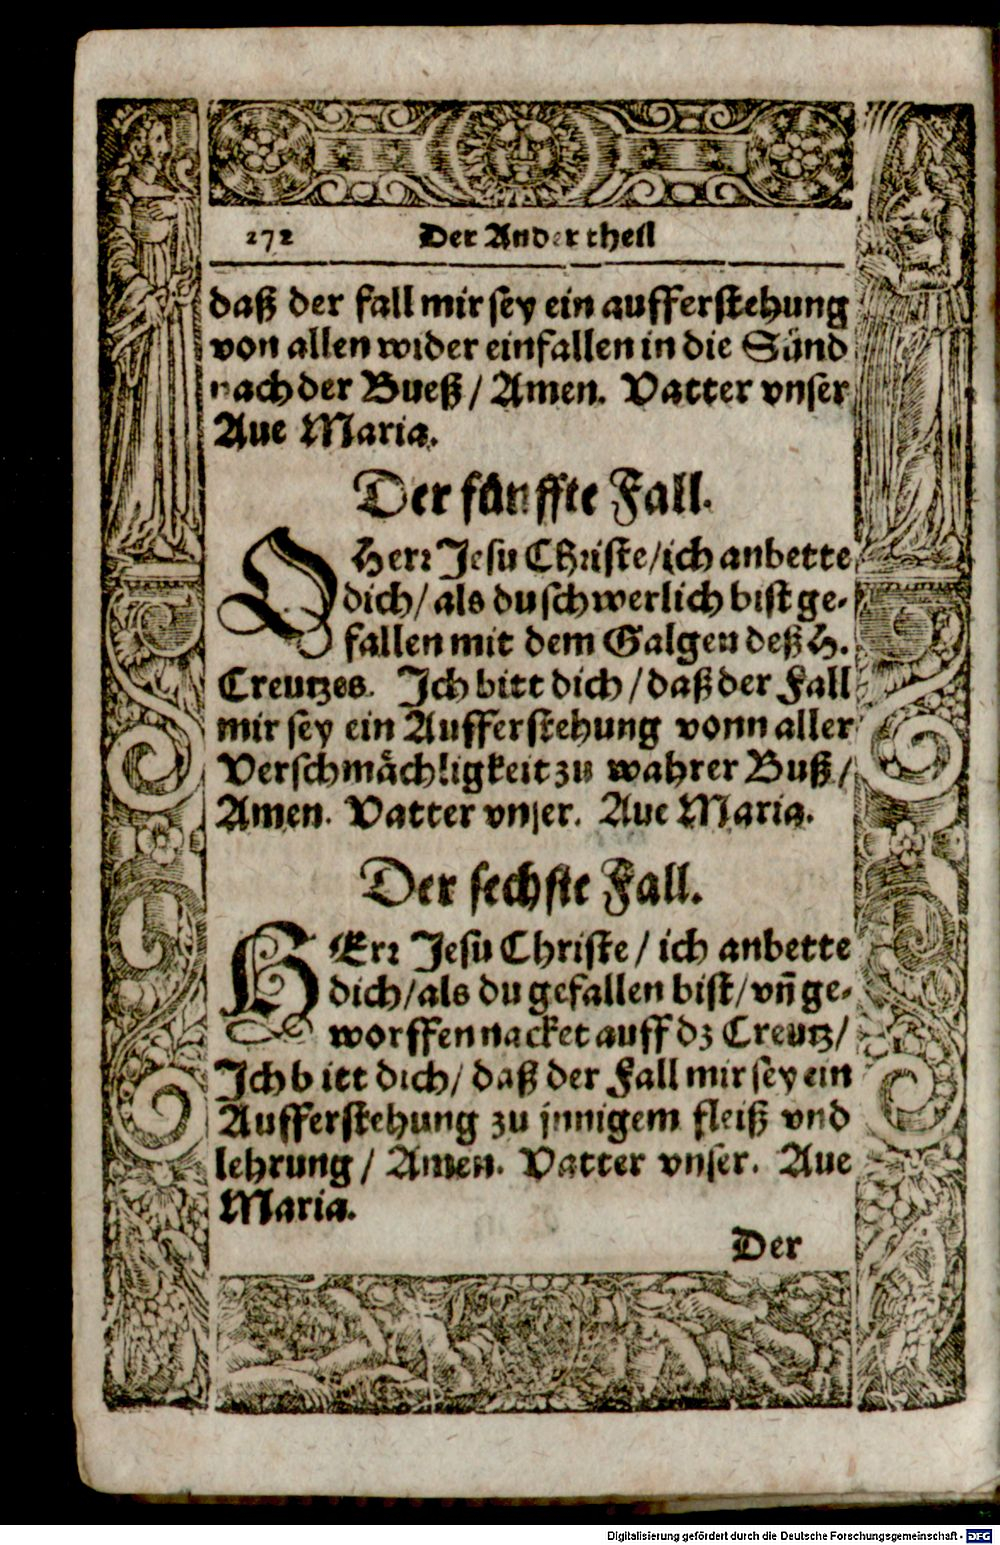 272 Der Ander theil
daß der fall mir sey ein aufferstehung
von allen wider einfallen in die Sünd
nach der Bueß / Amen. Vatter vnser
Aue Maria.
Der fünffte Fall.
O Herr Jesu Christe / ich anbette
dich / als du schwerlich bist ge-
fallen mit dem Galgen deß H.
Creutzes. Ich bitt dich / daß der Fall
mir sey ein Aufferstehung vonn aller
Verschmächligkeit zu wahrer Buß /
Amen. Vatter vnser. Aue Maria.
Der sechste Fall.
HErr Jesu Christe / ich anbette
dich / als du gefallen bist / vñ ge-
worffen nacket auff dz Creutz /
Ich bitt dich / daß der Fall mir sey ein
Aufferstehung zu jnnigem fleiß vnd
lehrung / Amen. Vatter vnser. Aue
Maria.
Der
Digitalisierung gefördert durch die Deutsche Forschungsgemeinschaft - DFG